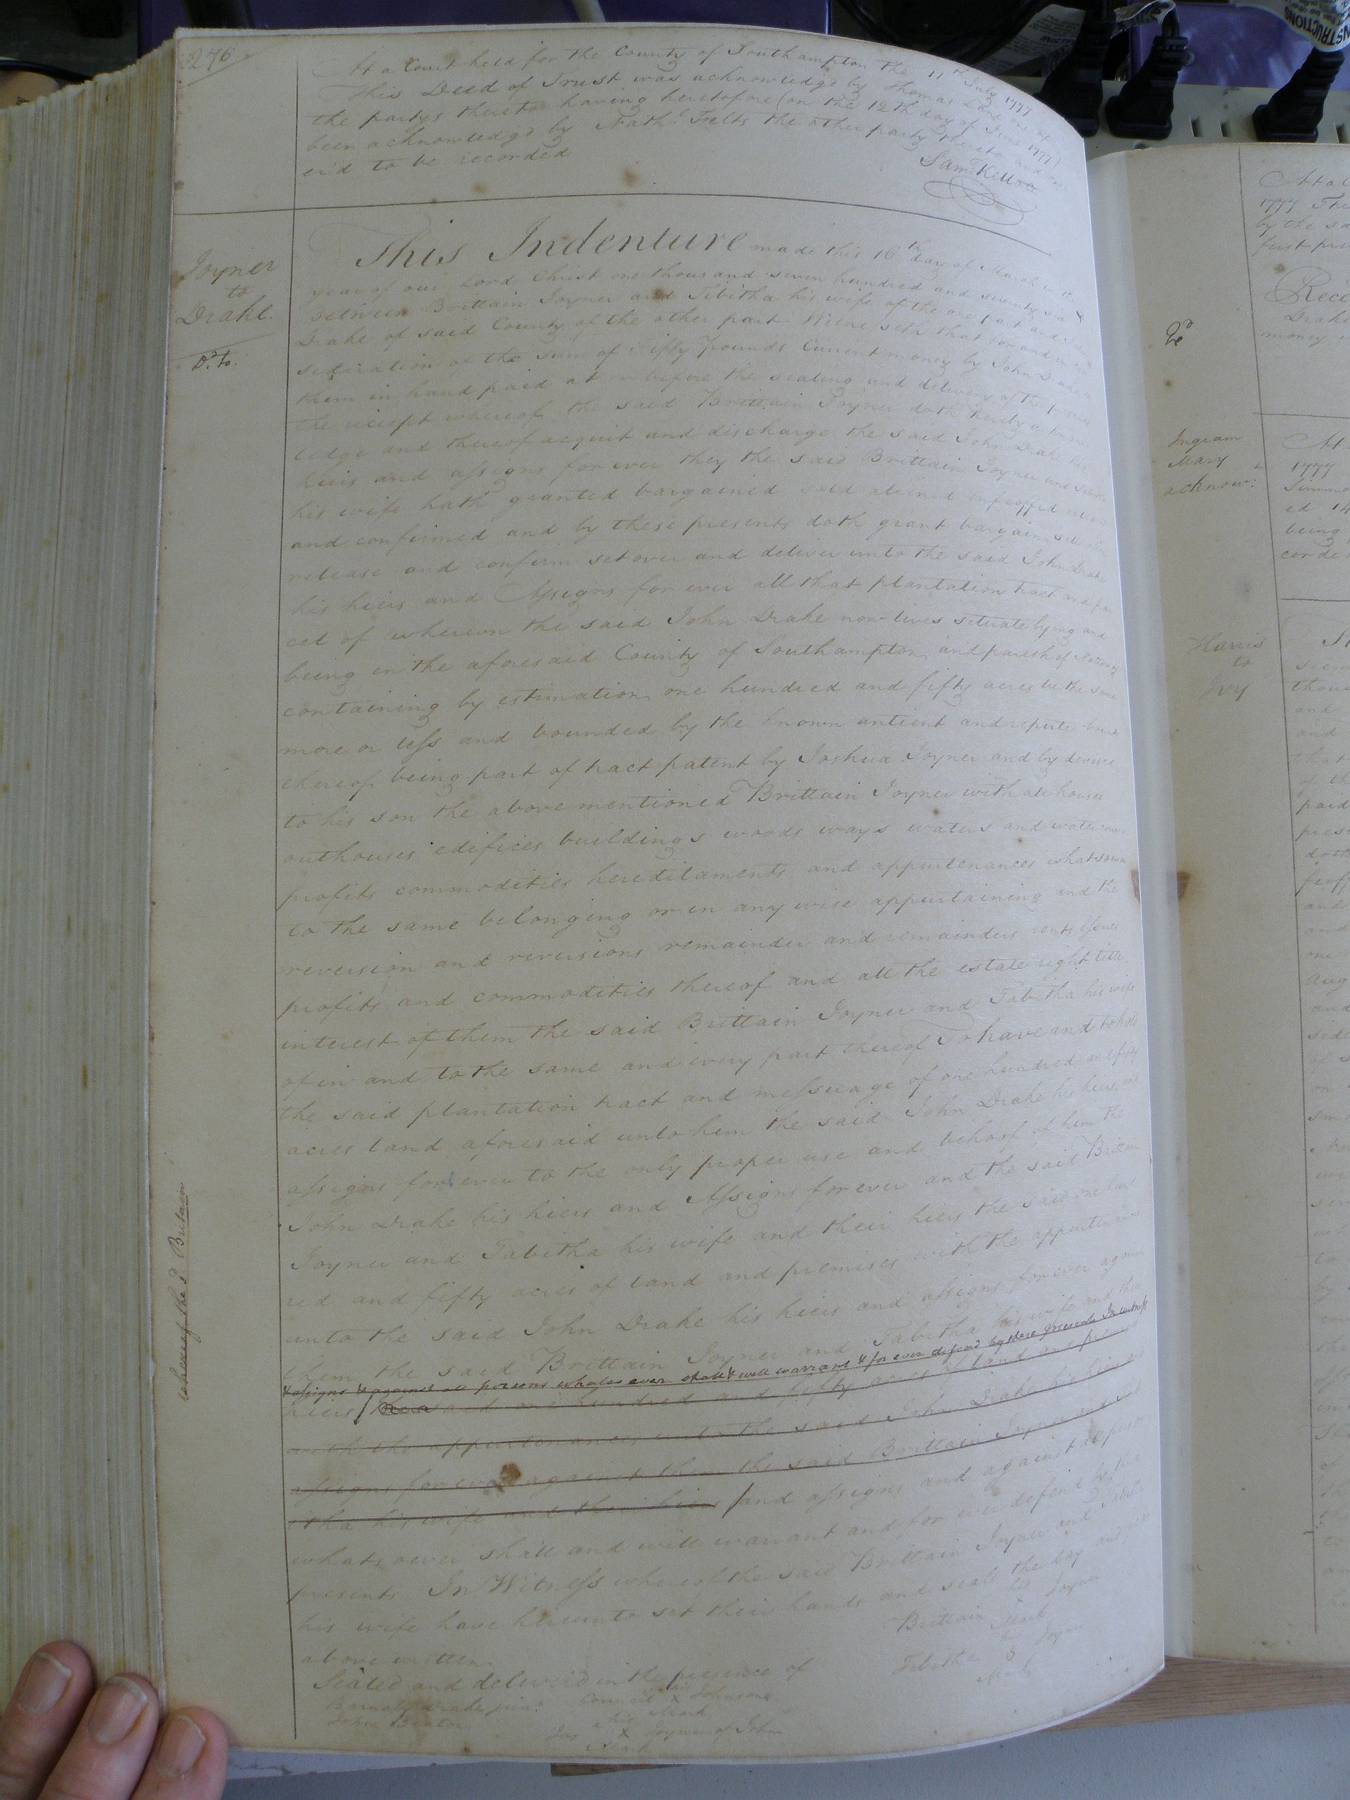 276
At a Court held for the County of Southampton the 11th July 1777
This Deed of Trust was acknowledg'd by Thomas Lane one of
the partys thereto having heretofore (on the 12th day of June 1777)
been acknowledg'd by Nath. Felts the other party thereto and
er'd to be recorded
Sam Kello
Joyner
to
Drake.
D.to
This Indenture made this 16th day of March in the
year of our Lord Christ one thousand seven hundred and seventy
between Brittain Joyner and Tibitha his wife of the one part and
Drake of said County of the other part Witnesseth that for and in con
sideration of the sum of fifty pounds Current money by John Drake
them in hand paid at or before the sealing and delivery of the presents
the reciept whereof the said Brittain Joyner doth hereby acknow
ledge and thereof acquit and discharge the said John Drake his
heirs and assigns for ever they the said Brittain Joyner and Tabitha
his wife hath granted bargained sold aliened enfeoffed
and confirmed and by these presents doth grant bargain sell
release and confirm set over and deliver unto the said John Drake
his heirs and Assigns for ever all that plantation tract and par
cel of whereon the said John Drake now lives situate lying and
being in the aforesaid County of Southampton and parish of
containing by estimation one hundred and fifty acres be the same
more or less and bounded by the known antient and repute
thereof being part of tract patent by Joshua Joyner and by devise
to his son the above mentioned Brittain Joyner with all houses
outhouses edifices buildings woods ways waters and water
profits commodities hereditaments and appurtenances whatsoever
to the same belonging or in any wise appurtaining and the
reversion and reversions remainder and remainders rents Issues
profits and commodities thereof and all the estate right title
interest of them the said Brittain Joyner and Tabitha his wife
of in and to the same and every part thereof To have and to hold
the said plantation tract and messuage of one hundred and fifty
acres land aforesaid unto him the said John Drake his heirs and
assigns for ever to the only proper use and behoof of him the
John Drake his heirs and Assigns for ever and the said Brittain
Joyner and Tabitha his wife and their heirs the said one hund
red and fifty acres of land and premises with the appurtenances
unto the said John Drake his heirs and assigns forever against
them the said Brittain Joyner and Tabitha his wife and their
& assigns & against all persons whatsoever shall & will warrant & for ever defend by these presents In witness
heirs / the said one hundred and fifty acres of land and premises
with the appurtenances unto the said John Drake his heirs and
assigns for ever against them the said Brittain Joyner and Tab
itha his wife and their heirs / and assigns and against all persons
whatsoever shall and will warrant and for ever defend by these
presents In Witness whereof the said Brittain Joyner and Tabitha
his wife have hereunto set their hands and seals the day and
above written.
whereof the sd. Britain
Brittain his mark Joyner
Tibitha 8 Joyner
mark
Sealed and delivered in the presence of
Barnaby Drake, jun: Council X Johnson
his Mark
Jos X Joyner of John
Mark
Rece
Drake
money
Ingram
Mary
acknow:
1777
being
corde
Harris
to
Ivy